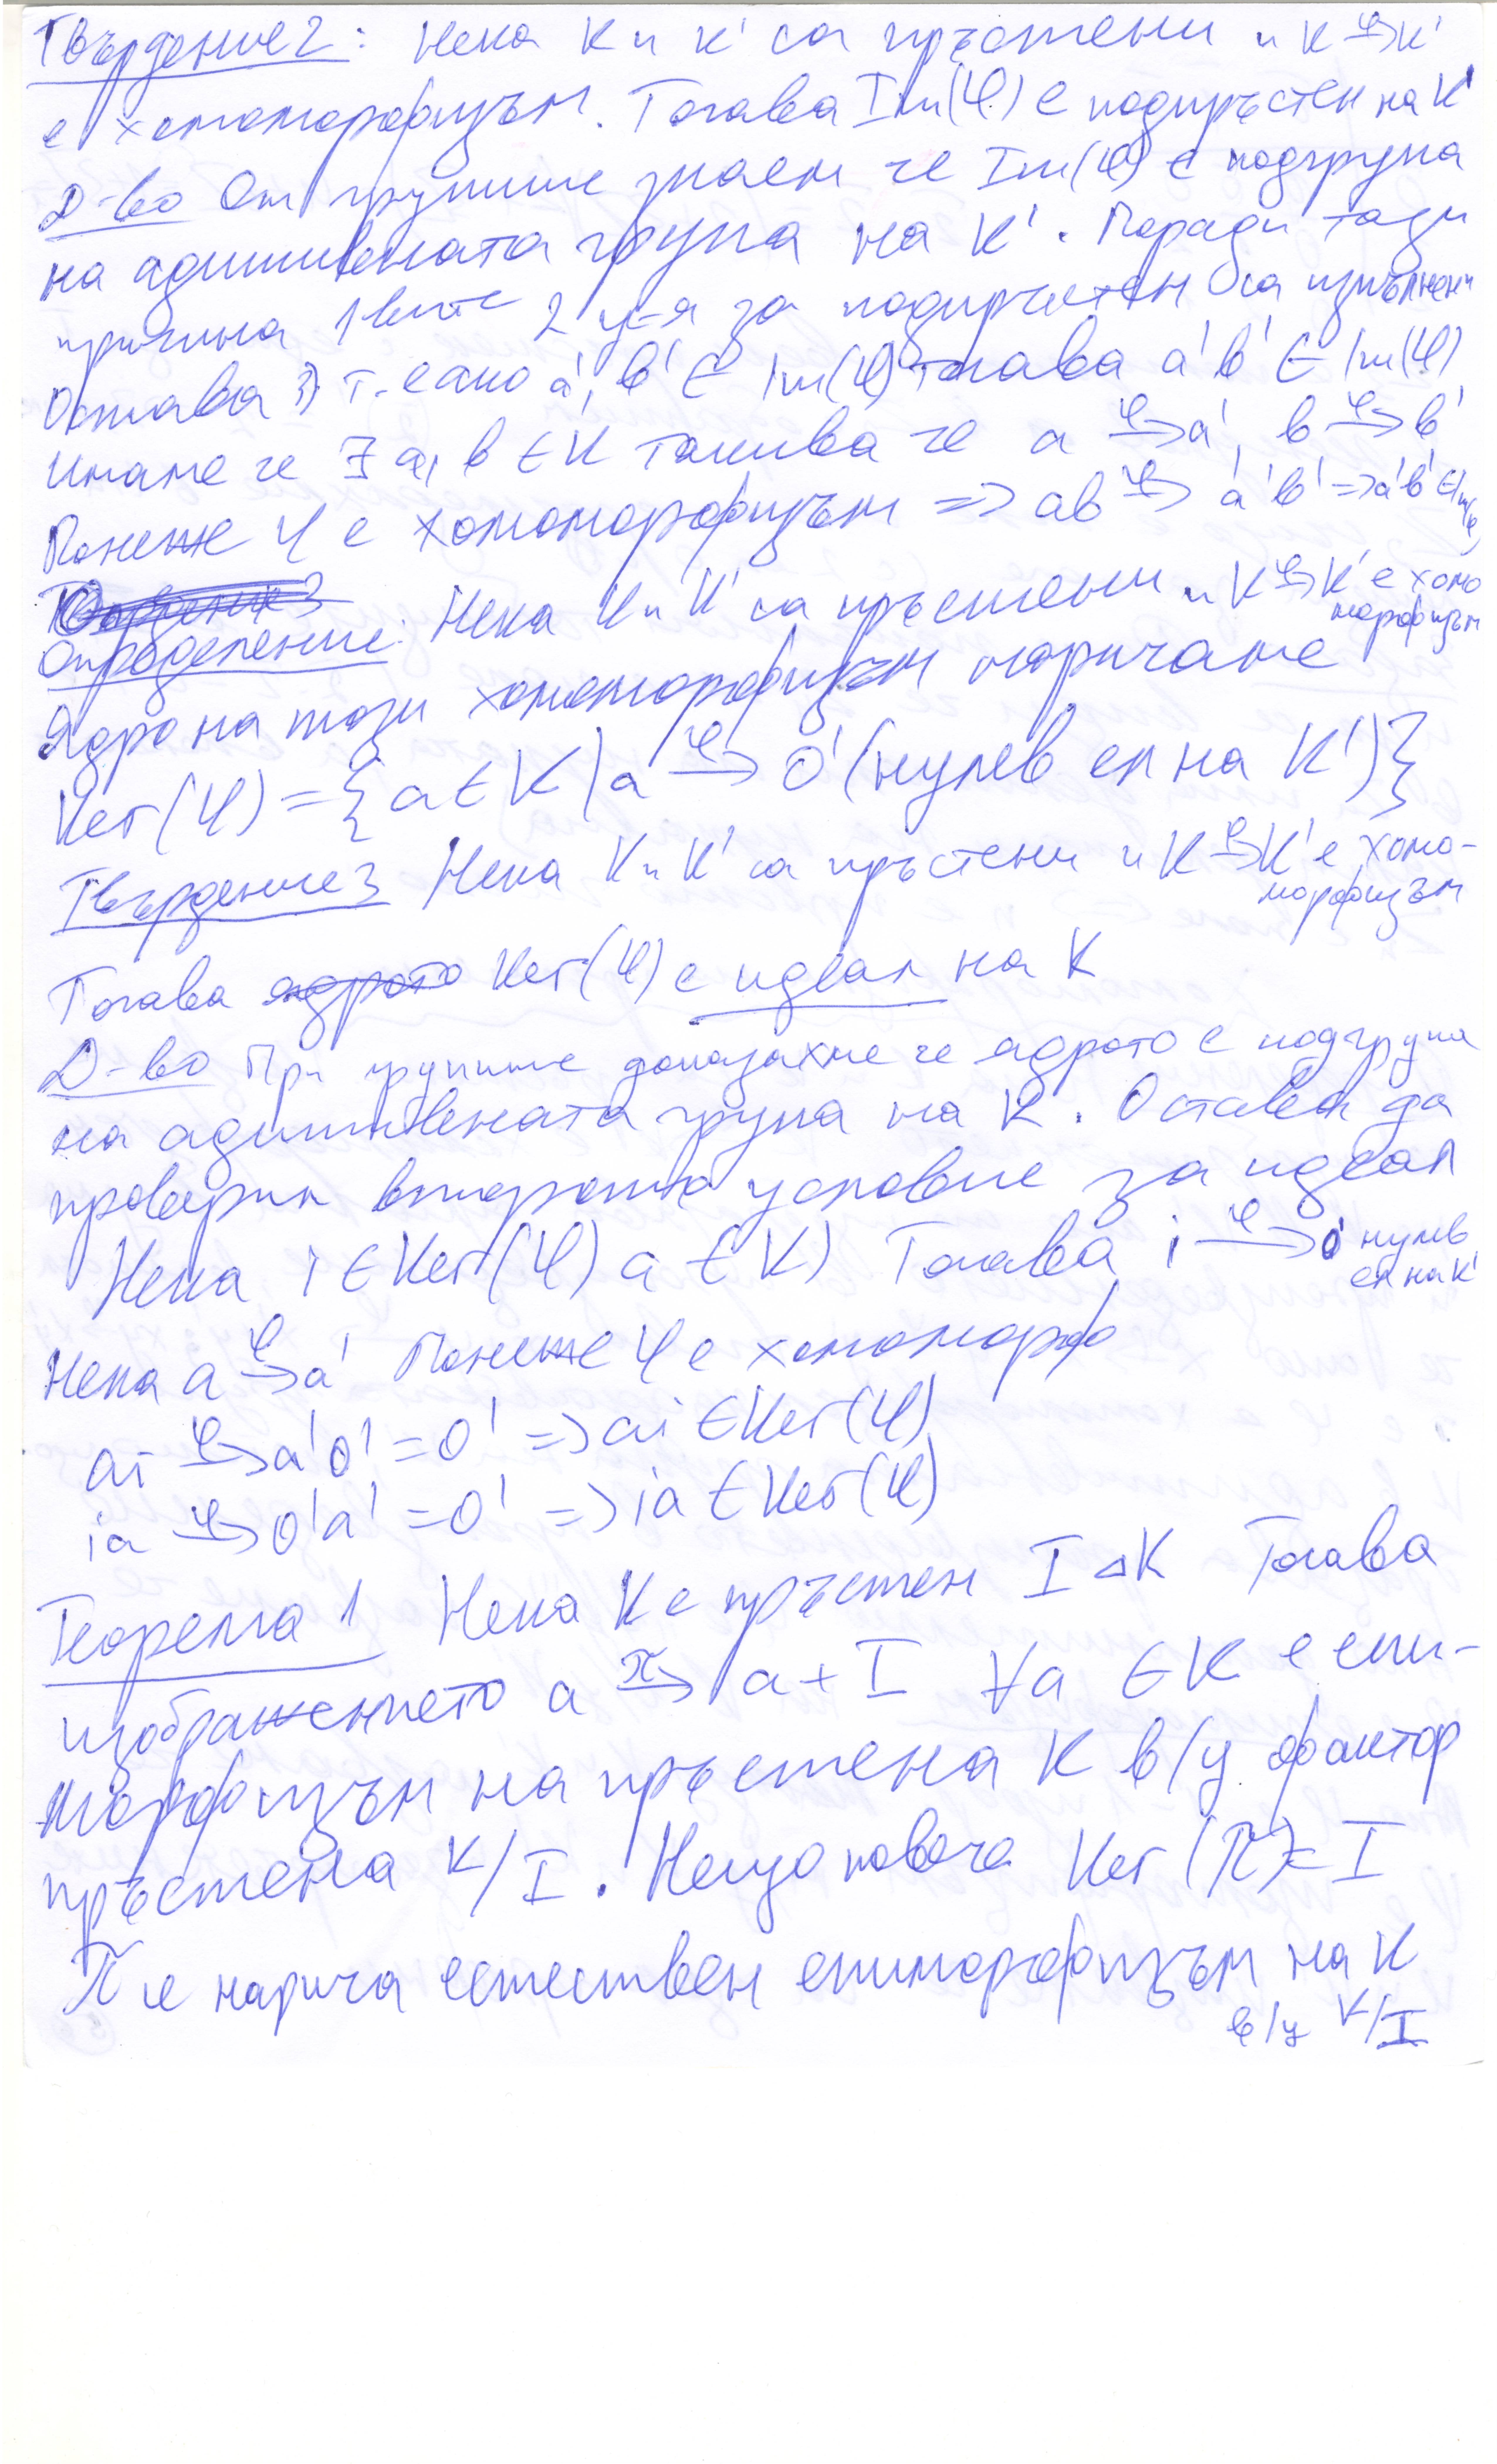 Твърдение 2: Нека K и K' са пръстени и K →φ K'
е хомоморфизъм. Тогава Im(φ) е подпръстен на K'
Д-во От групите знаем че Im(φ) е подгрупа
на адитивната група на K'. Поради тази
причина 1вите 2 у-я за подпръстен са изпълнени
Остава 3) т.е ако a', b' ∈ Im(φ) тогава a'b' ∈ Im(φ)
Имаме че ∃ a, b ∈ K такива че a →φ a', b →φ b'
Понеже φ е хомоморфизъм => ab →φ a'b' => a'b' ∈ Im(φ)
Определение: Нека K и K' са пръстени и K →φ K' е хомо
морфизъм
Ядро на този хомоморфизъм наричаме
Ker(φ) = {a ∈ K | a →φ 0' (нулев ел на K')}
Твърдение 3 Нека K и K' са пръстени и K →φ K' е хомо-
морфизъм
Тогава ядрото Ker(φ) е идеал на K
Д-во При групите доказахме че ядрото е подгрупа
на адитивната група на K. Оставa да
проверим второто условие за идеал
Нека i ∈ Ker(φ) a ∈ K) Тогава i →φ 0' нулев
ел на K'
Нека a →φ a' Понеже φ е хомоморф
ai →φ a'0' = 0' => ai ∈ Ker(φ)
ia →φ 0'a' = 0' => ia ∈ Ker(φ)
Теорема 1 Нека K е пръстен I ⊲ K Тогава
изображението a →π a + I ∀a ∈ K е епи-
морфизъм на пръстена K в/у фактор
пръстена K/I. Нещо повече Ker(π) = I
π се нарича естествен епиморфизъм на K
в/у K/I